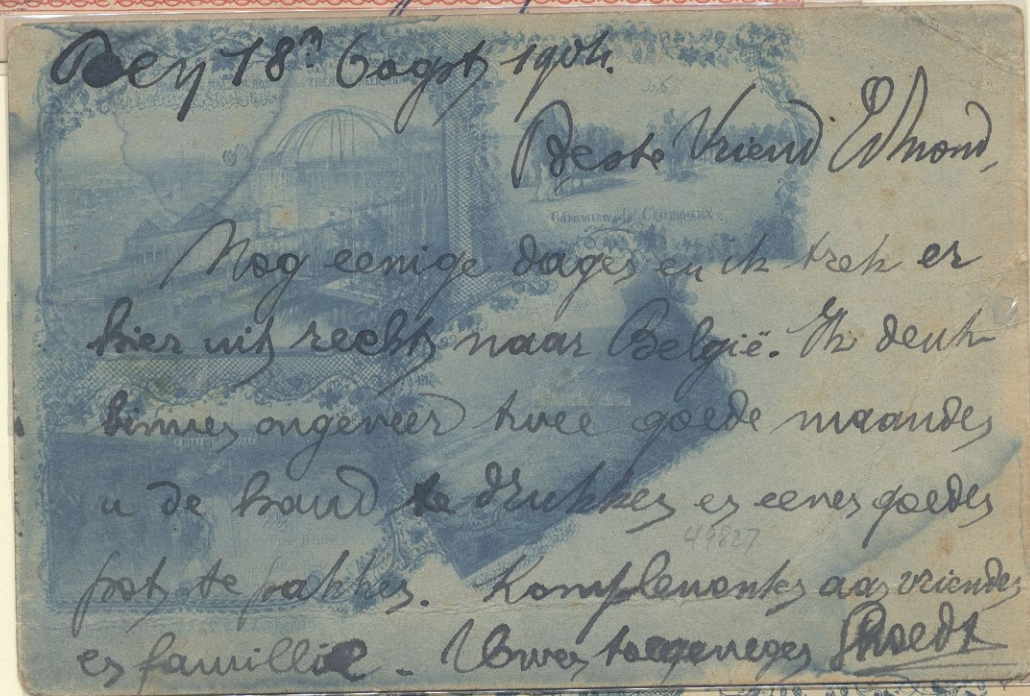 Rey 18n Oogst 1904.
Beste Vriend Edmond,
Nog eenige dagen en ik trek er
hier uit recht naar België. Ik denk
binnen ongeveer twee goede maanden
u de hand te drukken en eenen goeden
pot te pakken. Komplimenten aan vrienden
en famillie - Uwen toegenegen
Caravane de Chameaux
49827